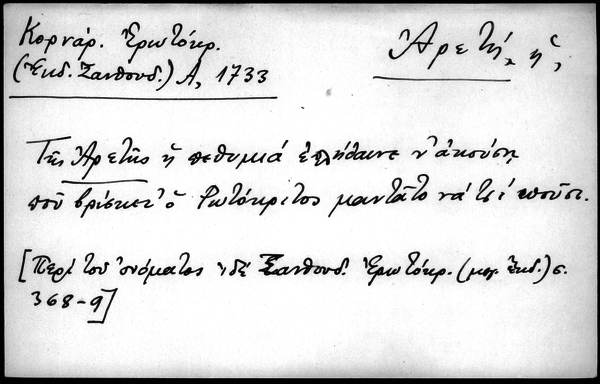 Κορνάρ. Ἐρωτόκρ.
(Ἐκδ. Ξανθουδ.) Α, 1733
Ἀρετή, ἡ,
Τῆς Ἀρετῆς ἡ πεθυμιὰ ἐπλήθαινε ν' ἀκούσῃ
ποῦ βρίσκετ' ὁ Ρωτόκριτος μαντᾶτο νὰ τσ' εἰποῦσι.
[Περὶ τοῦ ὀνόματος ἰδὲ Ξανθουδ. Ἐρωτόκρ. (μεγ. Ἐκδ.) σ.
368-9]